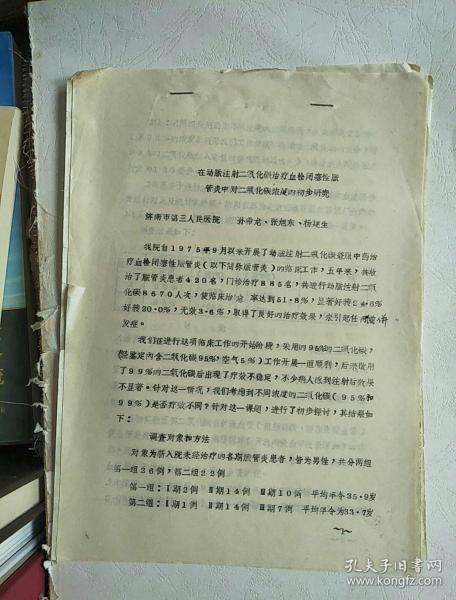 在动脉注射二氧化碳治疗血栓闭塞性脉
管炎中对二氧化碳浓度的初步研究
济南市第三人民医院 孙常龙、张旭东、杨延生
我院自1975年9月以来开展了动脉注射二氧化碳兼服中药治
疗血栓闭塞性脉管炎(以下简称脉管炎)的临床工作,五年来,共收
治了脉管炎患者420名,门诊治疗885名,共进行动脉注射二氧
化碳8670人次,使临床治愈率达到51.8%,显著好转24.6%
好转20.0%,无效3.6%,取得了良好的治疗效果,未引起任何副作
发症。
我们在进行这项临床工作的开始阶段,采用的95%的二氧化碳,
(经鉴定内含二氧化碳95%,空气5%)工作开展一直顺利,后来改用
了99%的二氧化碳后出现了疗效不稳定,不少病人感到注射后效果
不显著。针对这一情况,我们考虑到不同浓度的二氧化碳(95%和
99%)是否疗效不同?针对这一课题,进行了初步探讨,其结果如
下:
调查对象和方法
对象为新入院未经治疗的各期脉管炎患者,皆为男性,共分两组
第一组26例,第二组22例
第一组:Ⅰ期2例 Ⅱ期14例 Ⅲ期10例 平均年令35.9岁
第二组:Ⅰ期1例 Ⅱ期14例 Ⅲ期7例 平均年令为33.7岁
孔夫子旧书网
www.kongfz.com